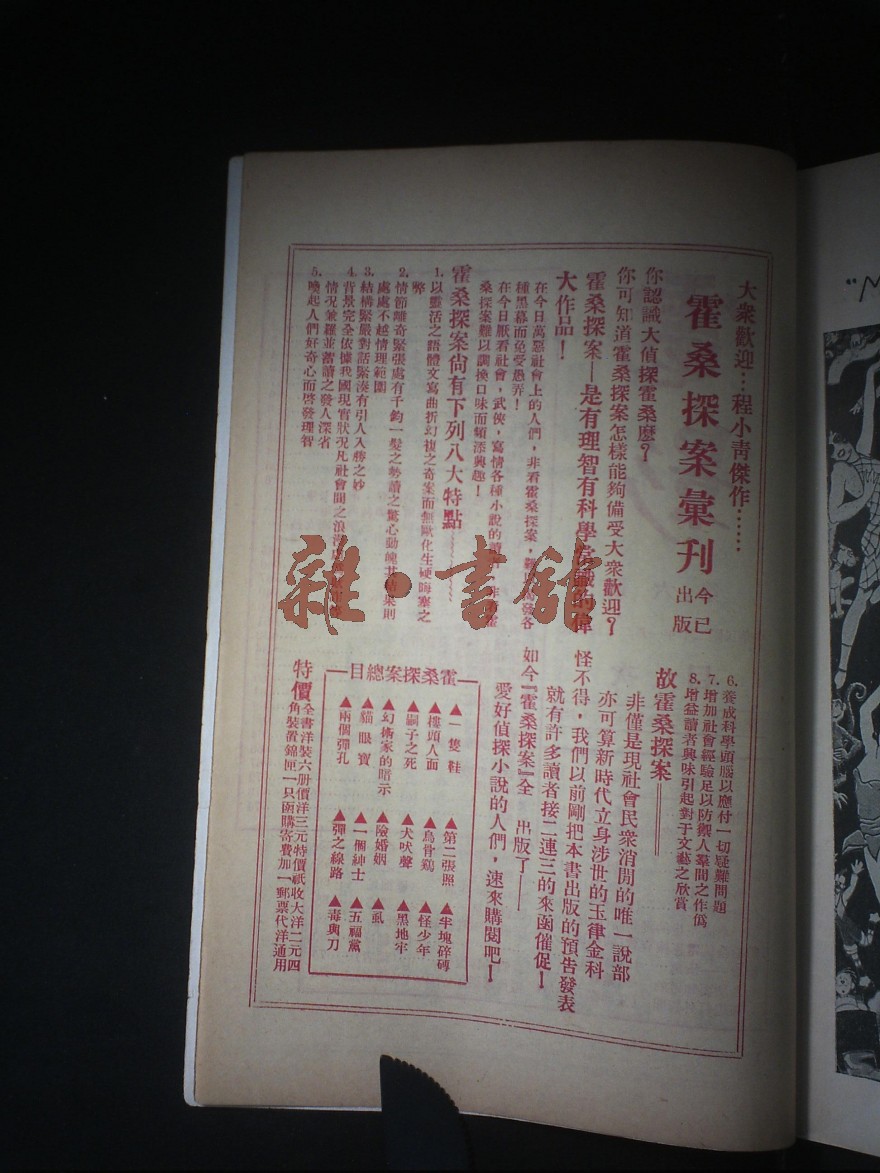 大衆歡迎…程小靑傑作……
霍桑探案彙刊 今已出版
你認識大偵探霍桑麽？
你可知道霍桑探案怎樣能夠備受大衆歡迎？
霍桑探案—是有理智有科學常識的偉
大作品！
在今日萬惡社會上的人們，非看霍桑探案，難以
種黑幕而免受愚弄！
在今日厭看社會，武俠，寫情各種小說的讀
桑探案難以調換口味而頻添興趣！
霍桑探案尙有下列八大特點
1. 以靈活之語體文寫曲折幻複之奇案而無歐化生硬晦塞之
弊
2. 情節離奇緊張處有千鈞一髮之勢讀之驚心動魄其結果則
處處不越情理範圍
3. 結構緊嚴對話緊湊有引人入勝之妙
4. 背景完全依據我國現實狀况凡社會間之浪
情况兼羅並蓄讀之發人深省
5. 喚起人們好奇心而啓發理智
6. 養成科學頭腦以應付一切疑難問題
7. 增加社會經驗足以防禦人羣間之作僞
8. 增益讀者興味引起對于文藝之欣賞
故霍桑探案——
非僅是現社會民衆消閒的唯一說部
亦可算新時代立身涉世的玉律金科
怪不得，我們以前剛把本書出版的預告發表
就有許多讀者接二連三的來函催促！
如今『霍桑探案』全 出版了——
愛好偵探小說的人們，速來購閱吧！
霍桑探案總目
▲一隻鞋 ▲第二張照 ▲半塊碎磚
▲樓頭人面 ▲烏骨鷄 ▲怪少年
▲嗣子之死 ▲犬吠聲 ▲黑地牢
▲幻術家的暗示 ▲險婚姻 ▲虱
▲貓眼寶 ▲一個紳士 ▲五福黨
▲兩個彈孔 ▲彈之線路 ▲毒與刀
特價 全書洋裝六册價洋三元特價祇收大洋二元四
角裝置錦匣一只函購寄費加一郵票代洋通用
雜·書館
"M